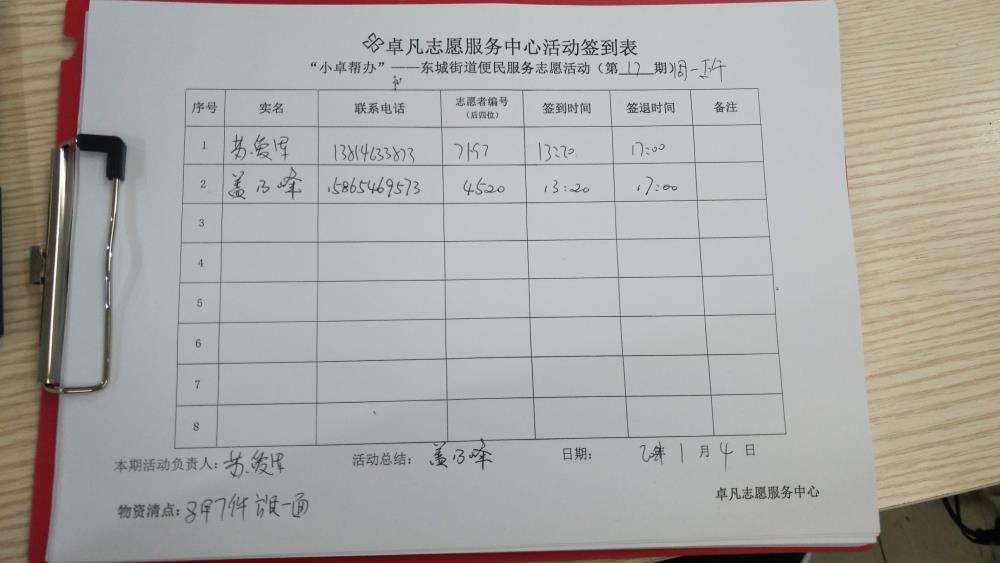 卓凡志愿服务中心活动签到表
“小卓帮办”——东城街道便民服务志愿活动（第 17 期）周一下午
序号 实名 联系电话 志愿者编号（后四位） 签到时间 签退时间 备注
1 苏爱军 13814633873 7197 13:20 17:00
2 盖乃峰 15865469573 4520 13:20 17:00
3
4
5
6
7
8
本期活动负责人：苏爱军 活动总结：盖乃峰 日期： 年 1 月 4 日
物资清点：马甲7件 一面
卓凡志愿服务中心